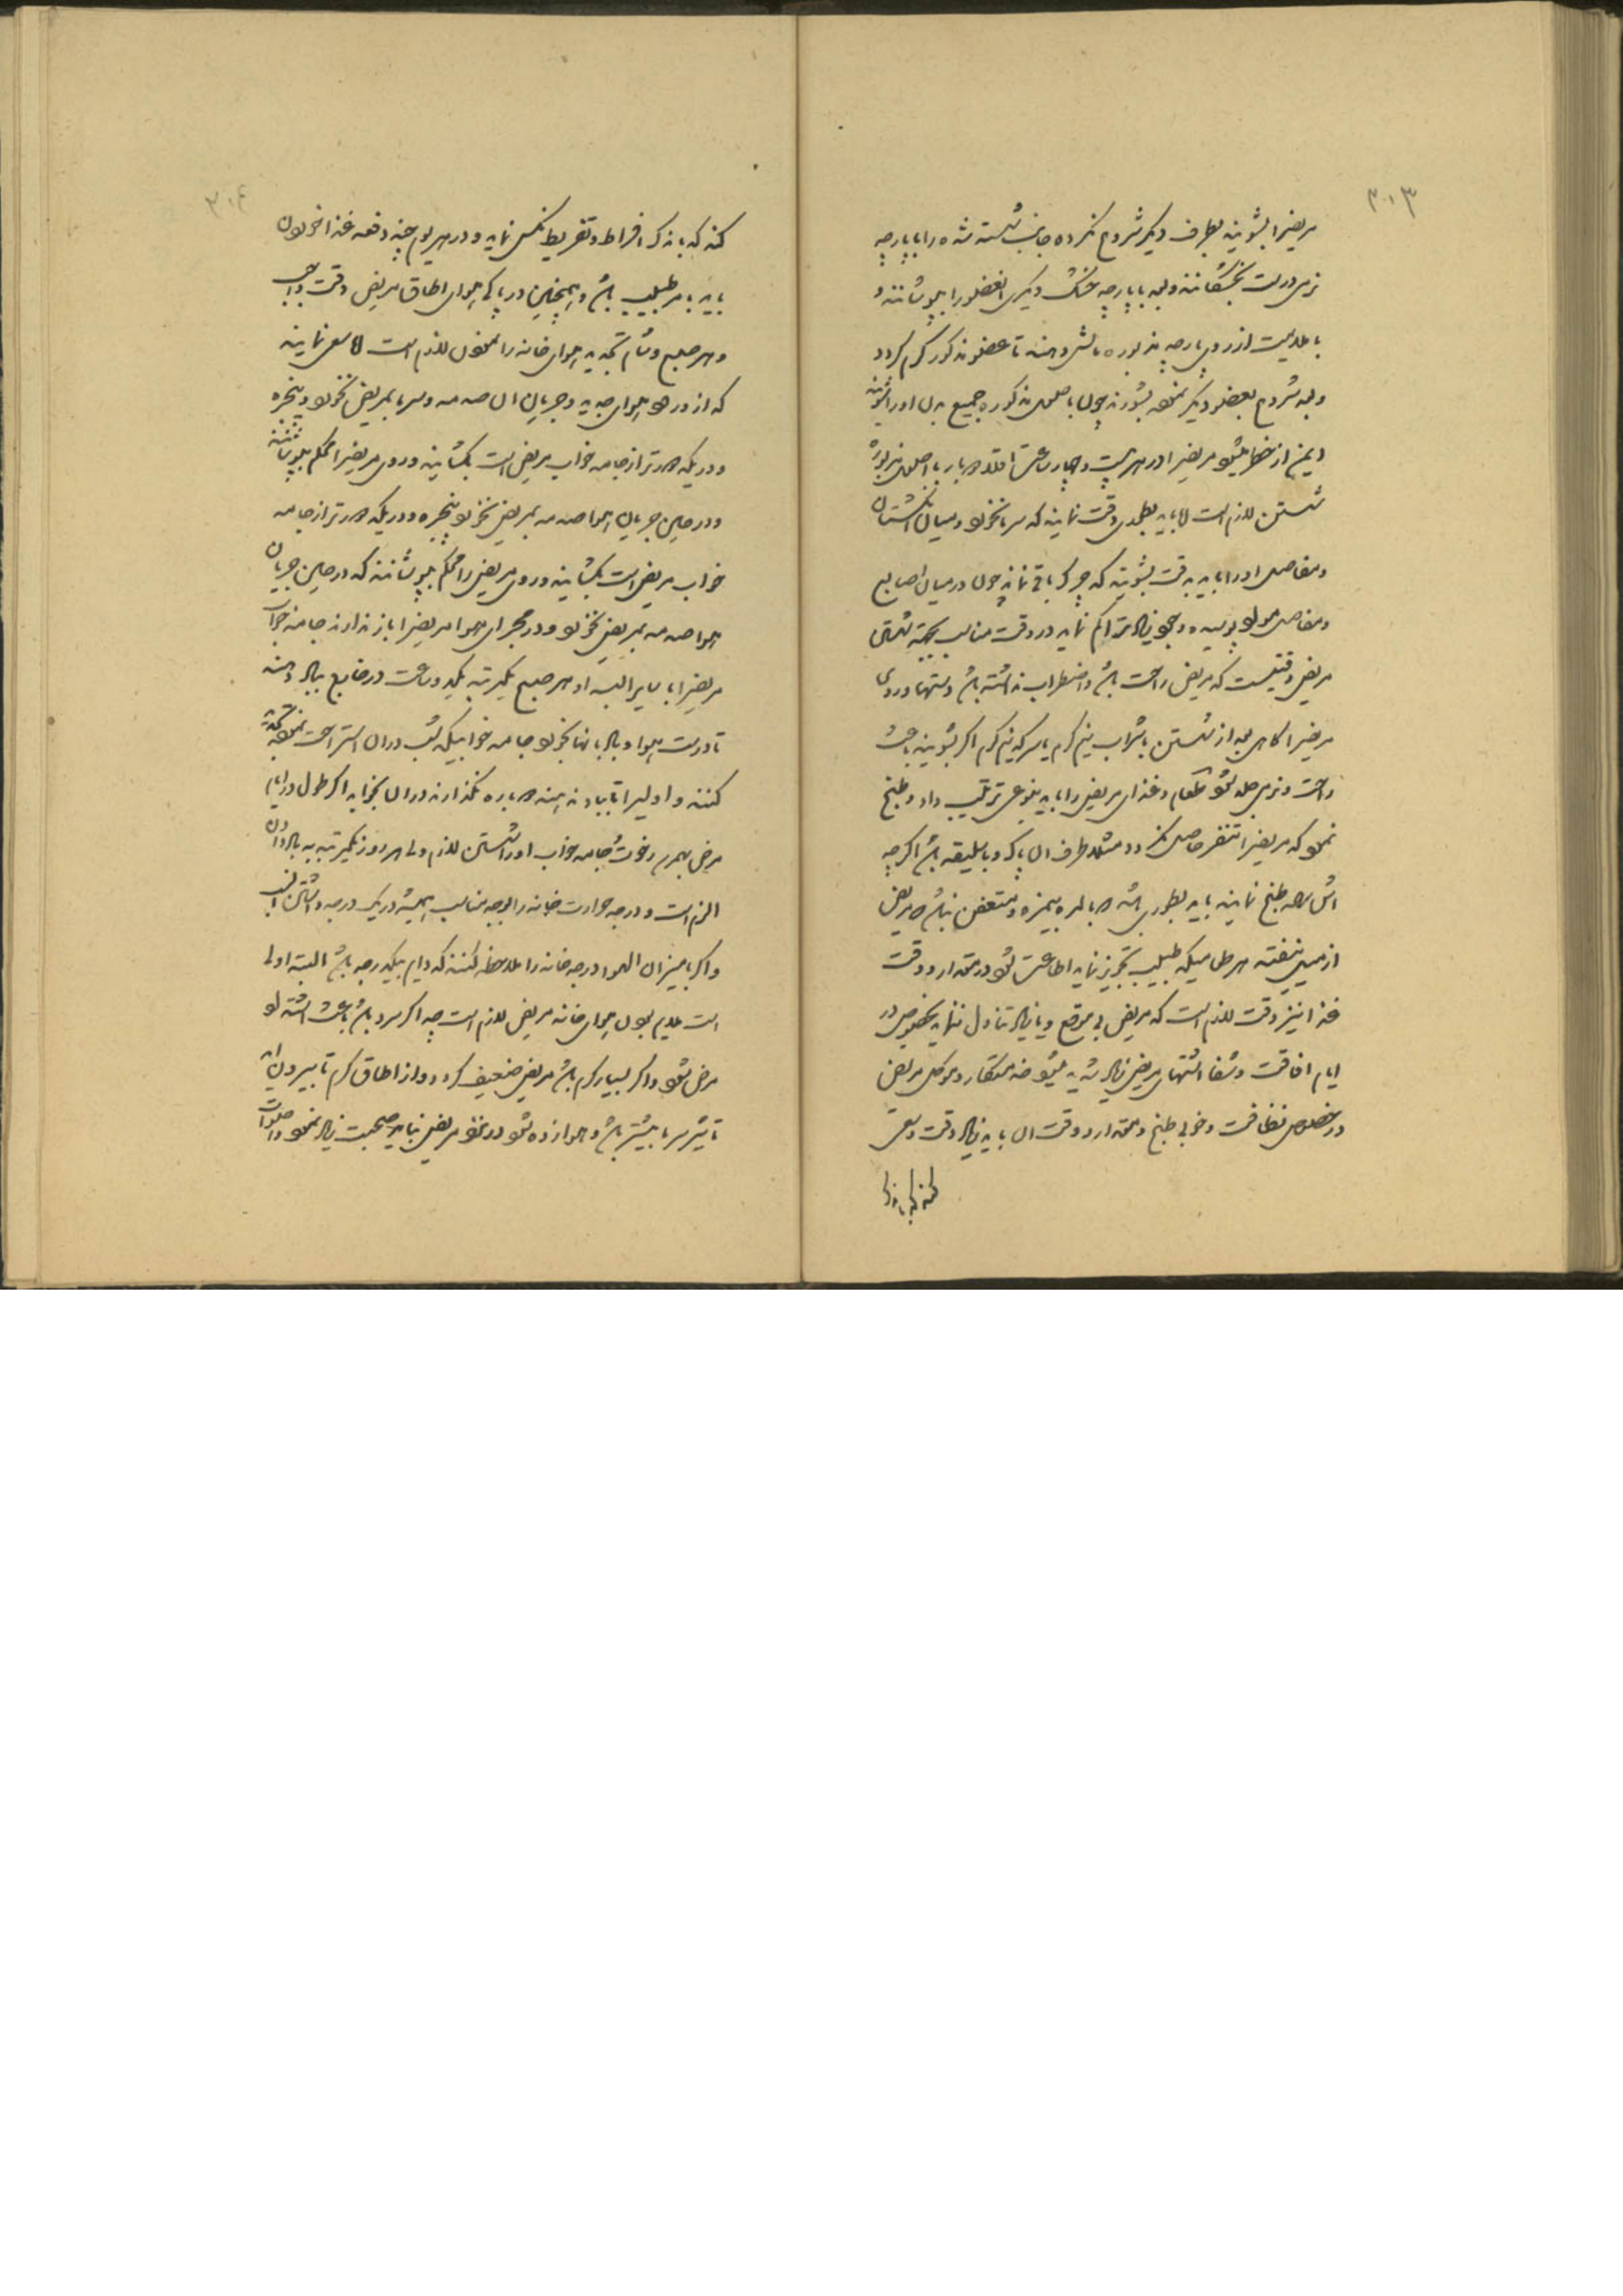 ۳۰۳
مریض را بشویند بطرف دیگر شروع نکرده جانب شسته شده را با پارچه
نرمی درست بخشکانند و بعد با پارچه خشک دیگری آنعضو را بپوشانند و
با ملایمت از روی پارچه مزبوره مالش دهند تا عضو مذکور گرم گردد
و بعد شروع بعضو دیگر نموده بشورند چون باصول مذکوره جمیع بدن او را شویند
ایمن از خطر میشود مریض را در هر بیست و چهار ساعت اقلا دو بار باصول مزبوره
شستن لازم است اما باید بطوری دقت نمایند که سرما نخورد و میان انگشتان
و مفاصل او را باید بدقت بشویند که چرک باقی نماند چون در میان اصابع
و مفاصل مواد پوسیده و جمود زیاد تراکم نماید در وقت مناسب بجهة شستن
مریض وقتیست که مریض راحت باشد و اضطراب نداشته باشد دستها و روی
مریض را گاهی بعد از شستن با شراب نیم گرم یا سرکه نیم گرم اگر بشویند باعث
راحت و نرمی جلد شود طعام و غذای مریض را باید بنوعی ترتیب داد و طبخ
نمود که مریض را تنفر حاصل نگردد مثلا ظرف آن پاک و با سلیقه باشد اگر چه
آش ساده طبخ نمایند باید بطوری باشد که بالمره بیمزه و متعفن نباشد که مریض
از میل بیفتد هر طعامیکه طبیب تجویز نماید اطاعت شود در مقدار و وقت
غذا نیز دقت لازم است که مریض بی موقع و یا زیاد تناول ننماید بخصوص در
ایام افاقت و شفا اشتهای مریض زیاد شدید میشود خدمتکار و موکل مریض
در خصوص نظافت و خوبی طبخ و مقدار و وقت آن باید زیاد دقت و سعی
کند که باندک
۳۰۴
کند که باندک افراط و تفریط نکس نماید و در هر یوم چند دفعه غذا خوردن
باید بامر طبیب باشد و همچنین در پاکی هوای اطاق مریض دقت واجب
و هر صبح و شام تجدید هوای خانه را نمودن لازم است اما سعی نمایند
که از ورود هوای جدید و جریان آن صدمه و سرما بمریض نخورد و پنجره
و دریکه دورتر از جامه خواب مریض است بگشایند و روی مریض را محکم بپوشانند
و در حین جریان هوا صدمه بمریض نخورد پنجره و دریکه دورتر از جامه
خواب مریض است بگشایند و روی مریض را محکم بپوشانند که در حین جریان
هوا صدمه بمریض نخورد و در مجرای هوا مریض را باز ندارند جامه خواب
مریض را با سایر البسه او هر صبح یکمرتبه یکدو ساعت در خارج بباد دهند
تا درست هوا و باد بآنها بخورد جامه خوابیکه شب در آن استراحت نموده تخته
کنند و اولی را تا بباد ندهند دوباره نگذارند در آن بخوابد اگر طول در ایام
مرض بهمرسد رخوت و جامه خواب او را شستن لازم ولی هر روز یکمرتبه بباد دادن
الزم است و درجه حرارت خانه را بوجه مناسب همیشه در یک درجه داشتن انسب
و اگر با میزان الهوا درجه خانه را ملاحظه کنند که دایم بیکدرجه باشد البته اولی
است ملایم بودن هوای خانه مریض لازم است چه اگر سرد باشد باعث اشتداد
مرض شود و اگر بسیار گرم باشد مریض ضعیف گردد و از اطاق گرم تا بیرون آید
تأثیر سرما بیشتر باشد و هوا زده شود در نزد مریض نباید صحبت زیاد نمود و اصوات